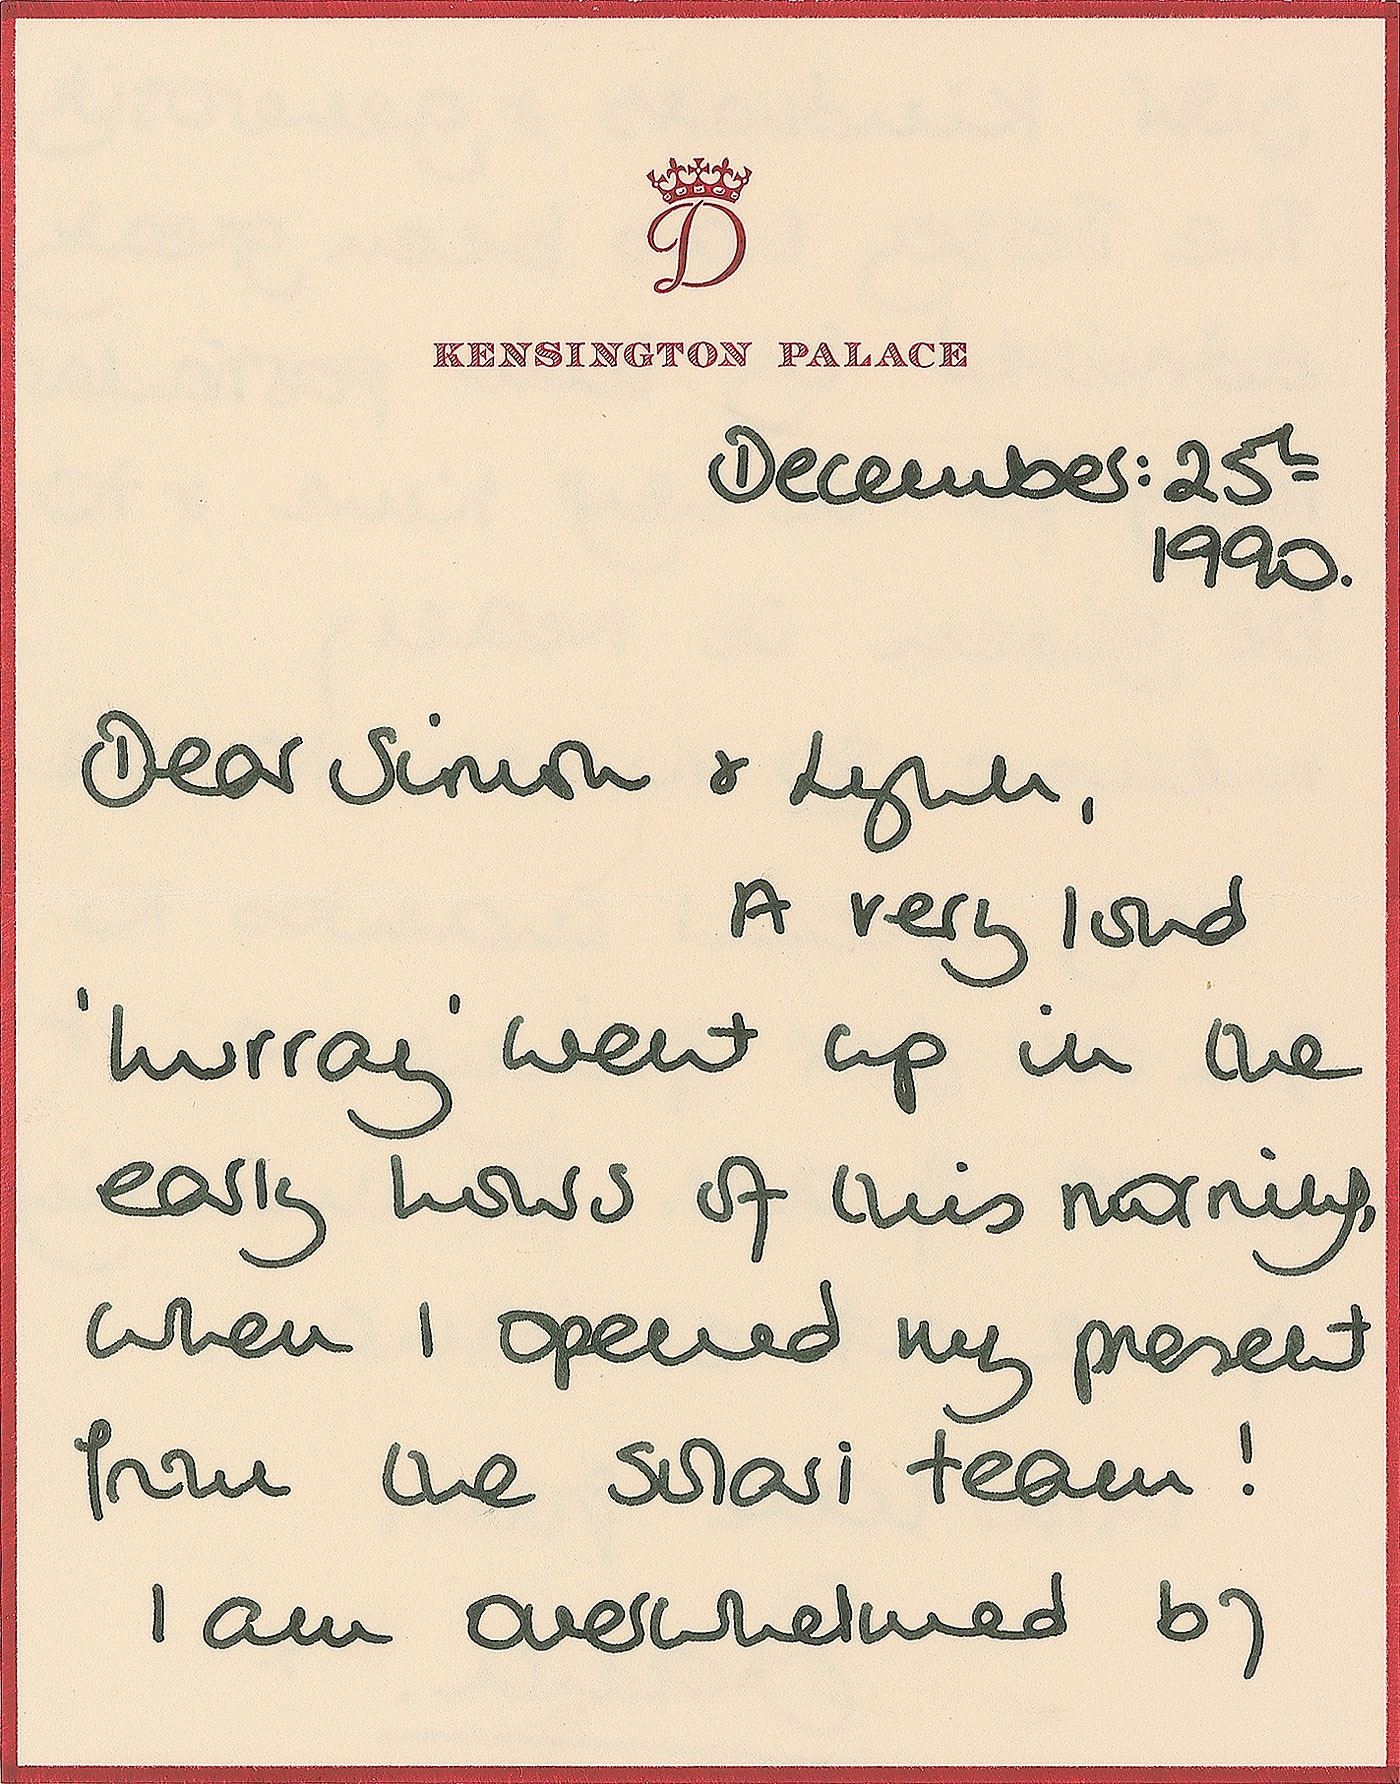 D
KENSINGTON PALACE
December: 25th
1990.
Dear Simon &
A very loud
'hurray' went up in the
early hours of this morning,
when I opened my present
from the Solari team!
I am overwhelmed by